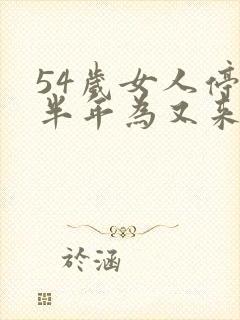 54歲女人停
半年為又来
於涵